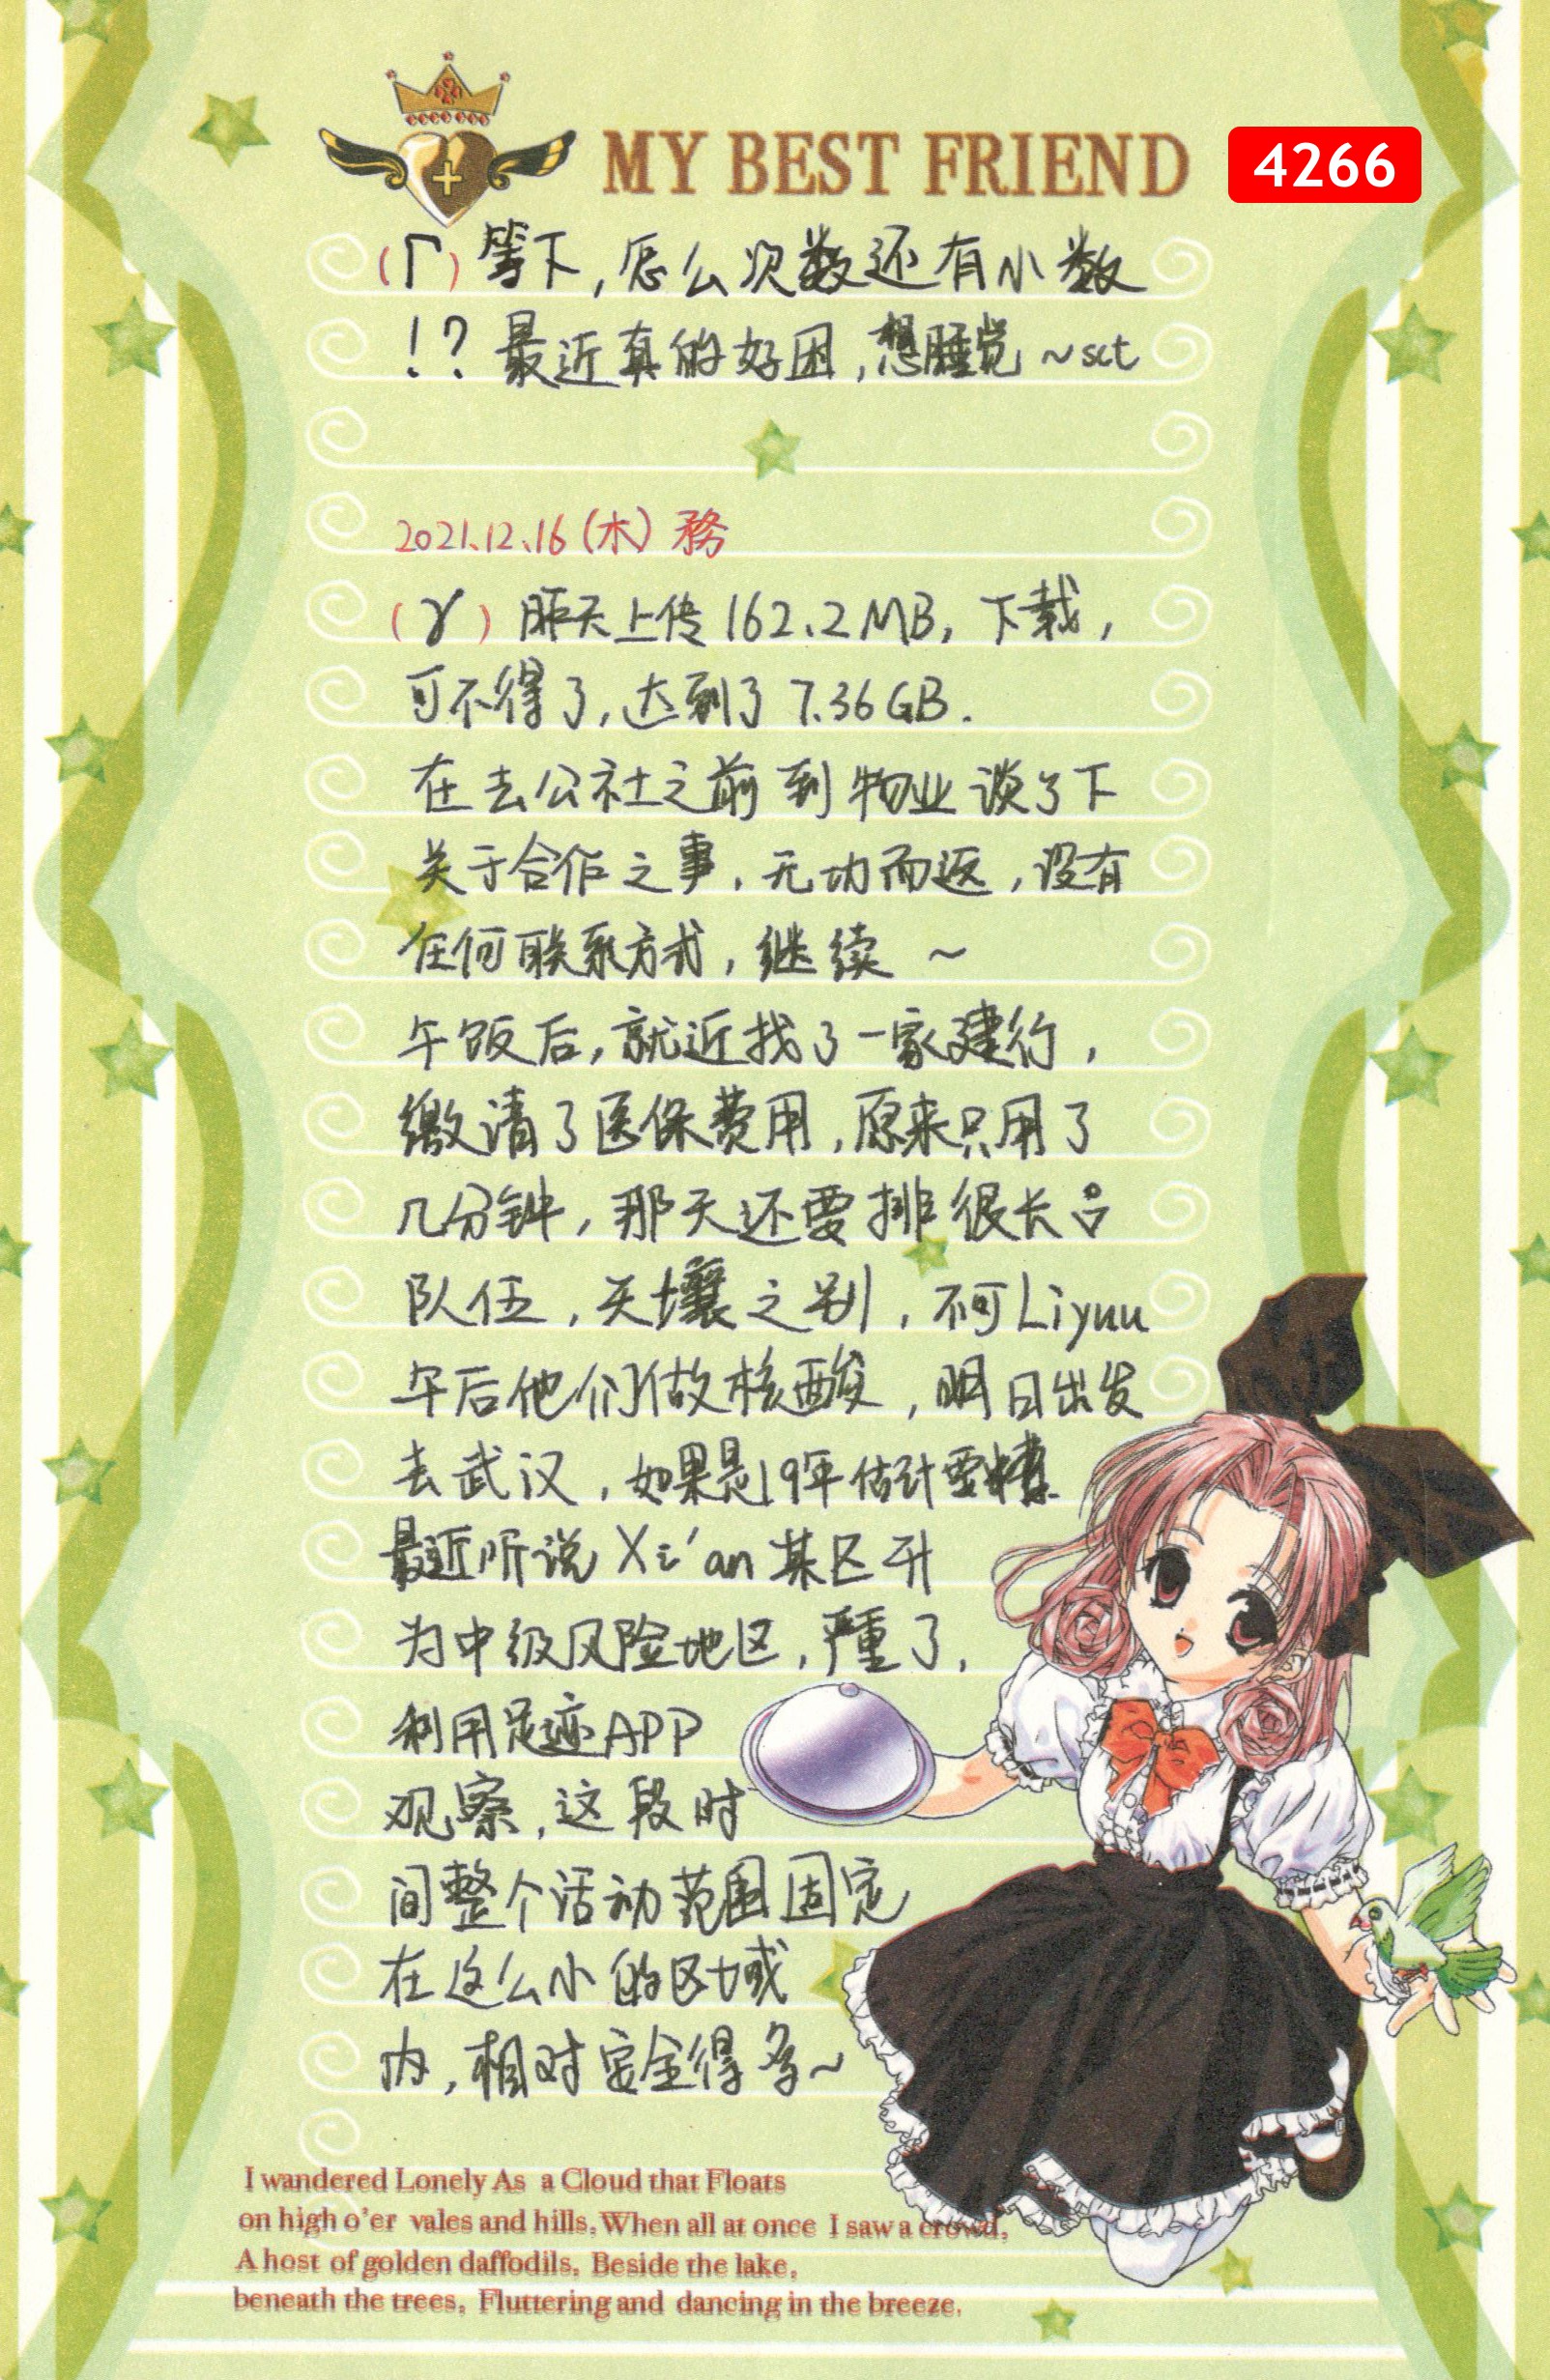 MY BEST FRIEND
4266
(Γ) 等下,怎么次数还有小数
!? 最近真的好困,想睡觉~sct
2021.12.16(木) 務
(γ) 昨天上传162.2MB, 下载,
可不得了,达到了7.36GB.
在去公社之前到物业谈了下
关于合作之事,无功而返,没有
任何联系方式,继续~
午饭后,就近找了一家建行,
缴清了医保费用,原来只用了
几分钟,那天还要排很长
队伍,天壤之别,不可Liyuu
午后他们做核酸,明日出发
去武汉,如果是19年估计要
最近听说Xi'an某区升
为中级风险地区,严重了,
利用足迹APP
观察,这段时
间整个活动范围固定
在这么小的区域
内,相对安全得多~
I wandered Lonely As a Cloud that Floats
on high o'er vales and hills. When all at once I saw a crowd,
A host of golden daffodils, Beside the lake,
beneath the trees, Fluttering and dancing in the breeze.